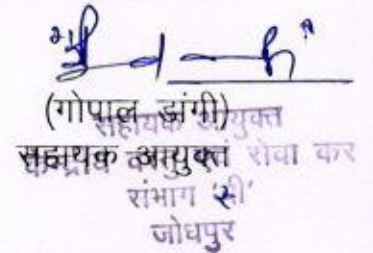 (गोपाल डांगी)
सहायक आयुक्त
सहायक आयुक्त
वस्तु एवं सेवा कर
संभाग 'सी'
जोधपुर